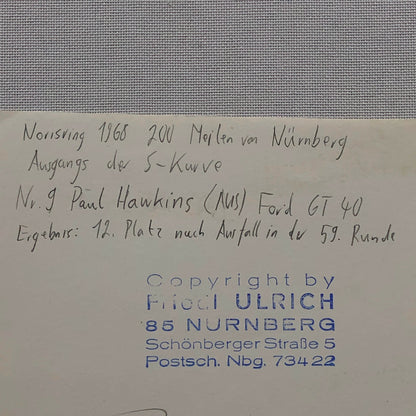 Norisring 1968 200 Meilen von Nürnberg
Ausgangs der S-Kurve
Nr. 9 Paul Hawkins (AUS) Ford GT 40
Ergebnis: 12. Platz nach Ausfall in der 59. Runde
Copyright by
Friedl ULRICH
85 NURNBERG
Schönberger Straße 5
Postsch. Nbg. 73422